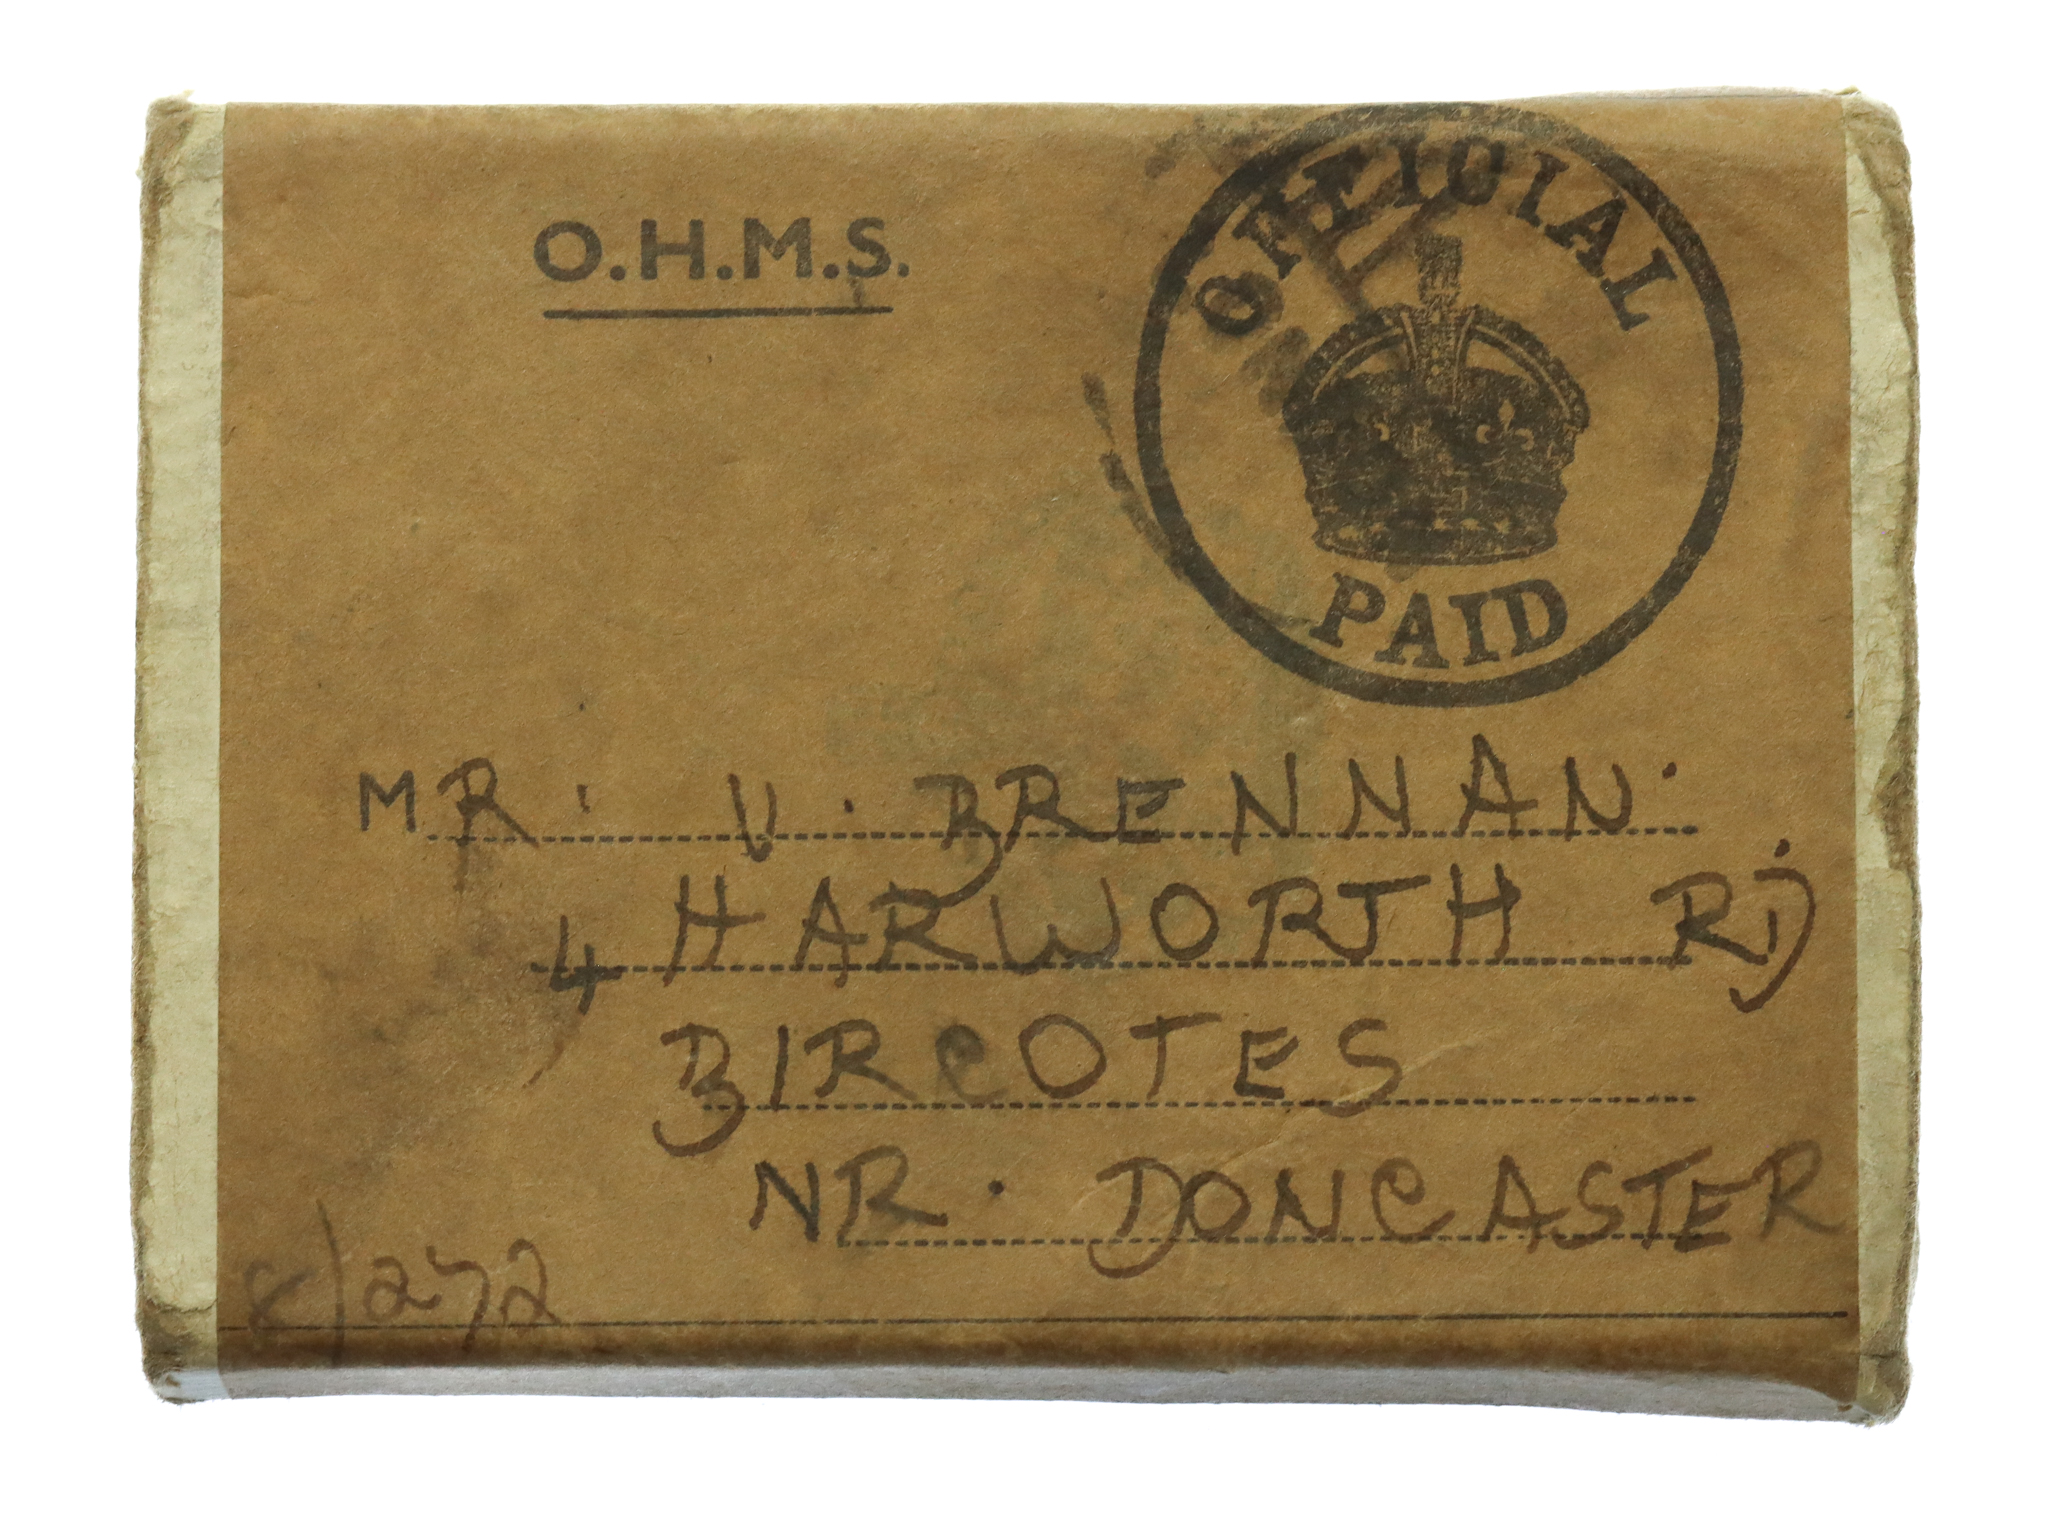 O.H.M.S.
OFFICIAL
PAID
MR. V. BRENNAN.
4 HARWORTH RD
BIRCOTES
NR. DONCASTER
8/272